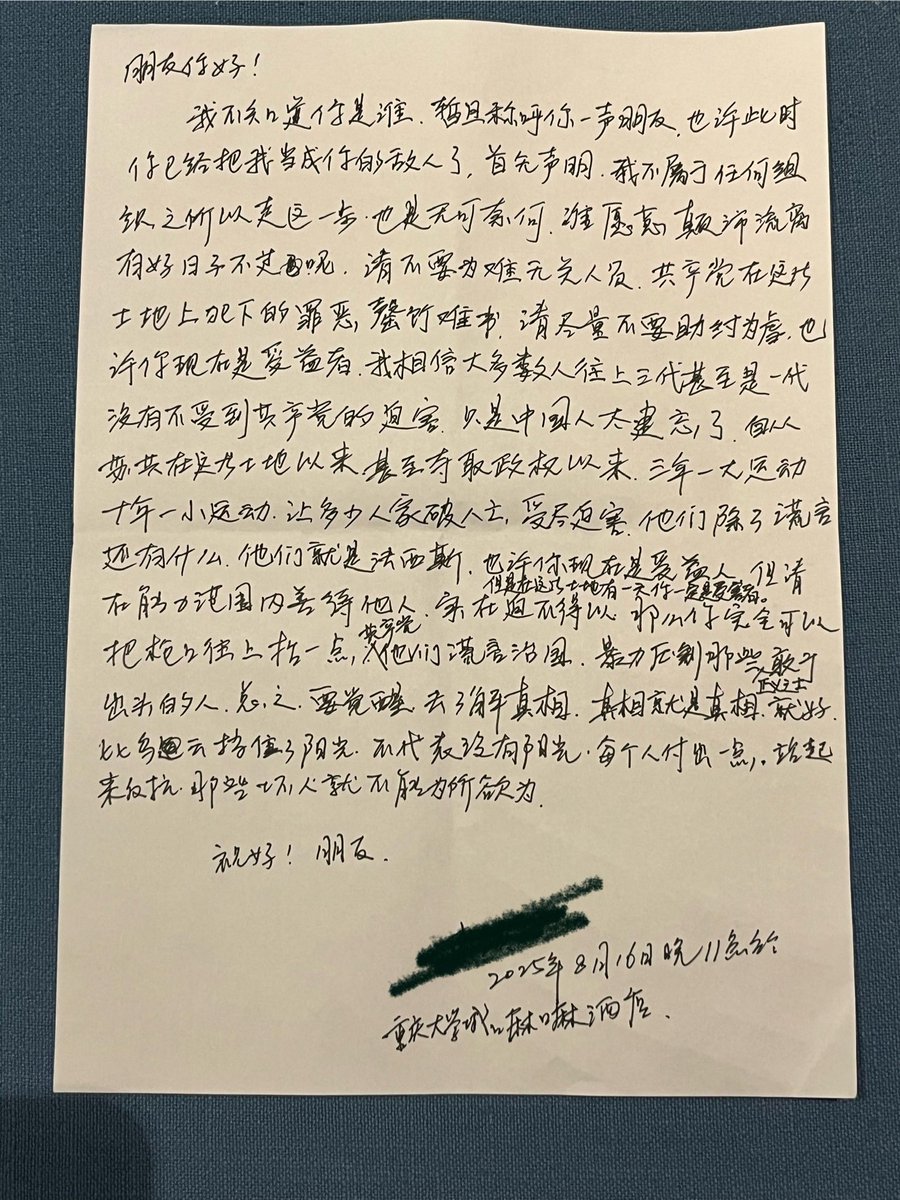 朋友你好!
我不知道你是谁.暂且称呼你一声朋友.也许此时
你已给把我当成你的敌人了,首先声明.我不属于任何组
织.之所以走这一步.也是无可奈何.谁愿意颠沛流离
有好日子不过呢.请不要为难无关人员.共产党在这片
土地上犯下的罪恶,罄竹难书.请尽量不要助纣为虐.也
许你现在是受益者.我相信大多数人往上三代甚至是一代
没有不受到共产党的迫害.只是中国人太健忘了.自从
苏共在这片土地以来.甚至夺取政权以来.三年一大运动
十年一小运动.让多少人家破人亡,受尽迫害.他们除了谎言
还有什么.他们就是法西斯.也许你现在是受益人.但请
但是在这片土地有一天你一定是受害者。
在能力范围内善待他人.实在迫不得以.那么你完全可以
把枪口往上抬一点,共产党他们谎言治国.暴力压制那些敢于
出头的人.总之.要觉醒.去了解真相.真相就是真相.就好
比乌云挡住了阳光.不代表没有阳光.每个人付出一点,.站起
来反抗.那些坏人就不能为所欲为.
祝好!朋友.
2025年8月16日晚11点於
重庆大学城 酒店.